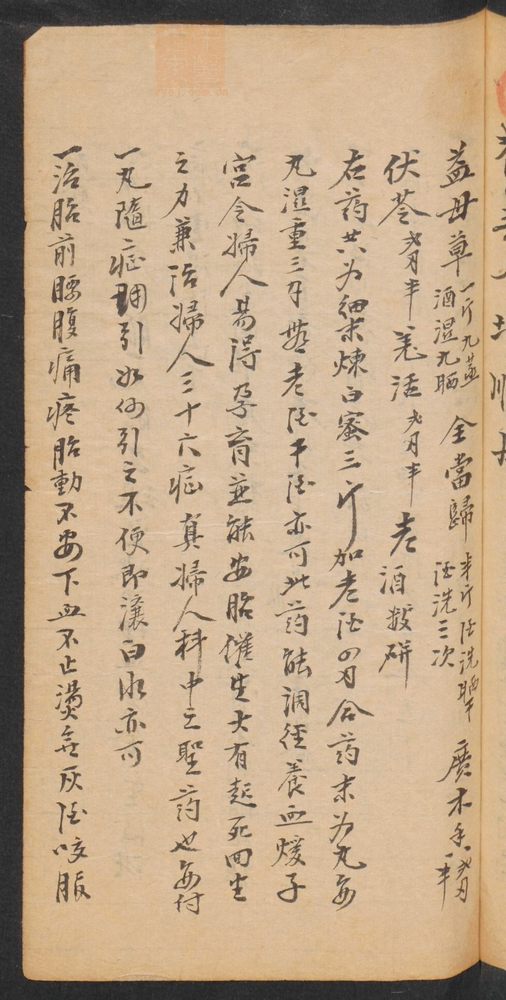 益母草一斤九蒸酒湿九晒 全當歸半斤陸洗晒酒洗三次 廣木香弍両半
伏苓弍両半 羌活弍両半 老酒散研
右药共为細末煉白蜜三斤加老酒四刄合药末为丸每
丸湿重三刄 老酒干酒亦可此药能調経養血煖子
宮令婦人易得孕育並能安胎催生大有起死回生
之力兼治婦人三十六症真婦人科中之聖药也每付
一丸隨症調引如何引之不便即滚白水亦可
一治胎前腰腹痛疼胎動不安下血不止燙無灰酒咬服